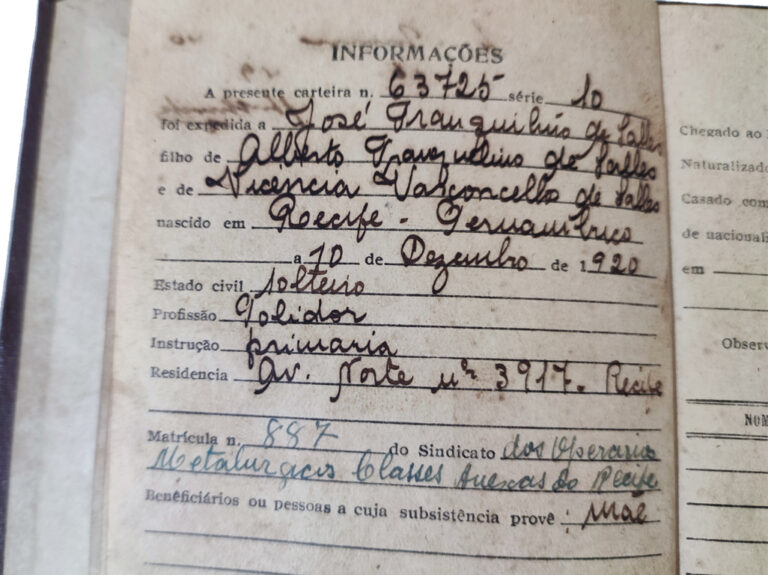 INFORMAÇÕES
A presente carteira n. 63725 série 10
foi expedida a José Tranquilino de Salles
filho de Alberto Tranquelino de Salles
e de Vicencia Vasconcello de Salles
nascido em Recife - Pernambuco
a 10 de Dezembro de 1920
Estado civil solteiro
Profissão Polidor
Instrução primaria
Residencia Av. Norte nº 3917. Recife
Matrícula n. 887 do Sindicato dos Operarios
Metalurgicos Classes Anexas do Recife
Beneficiários ou pessoas a cuja subsistência provê: Mãe
Chegado ao
Naturalizado
Casado com
de nacionali
em
Observ
NOM